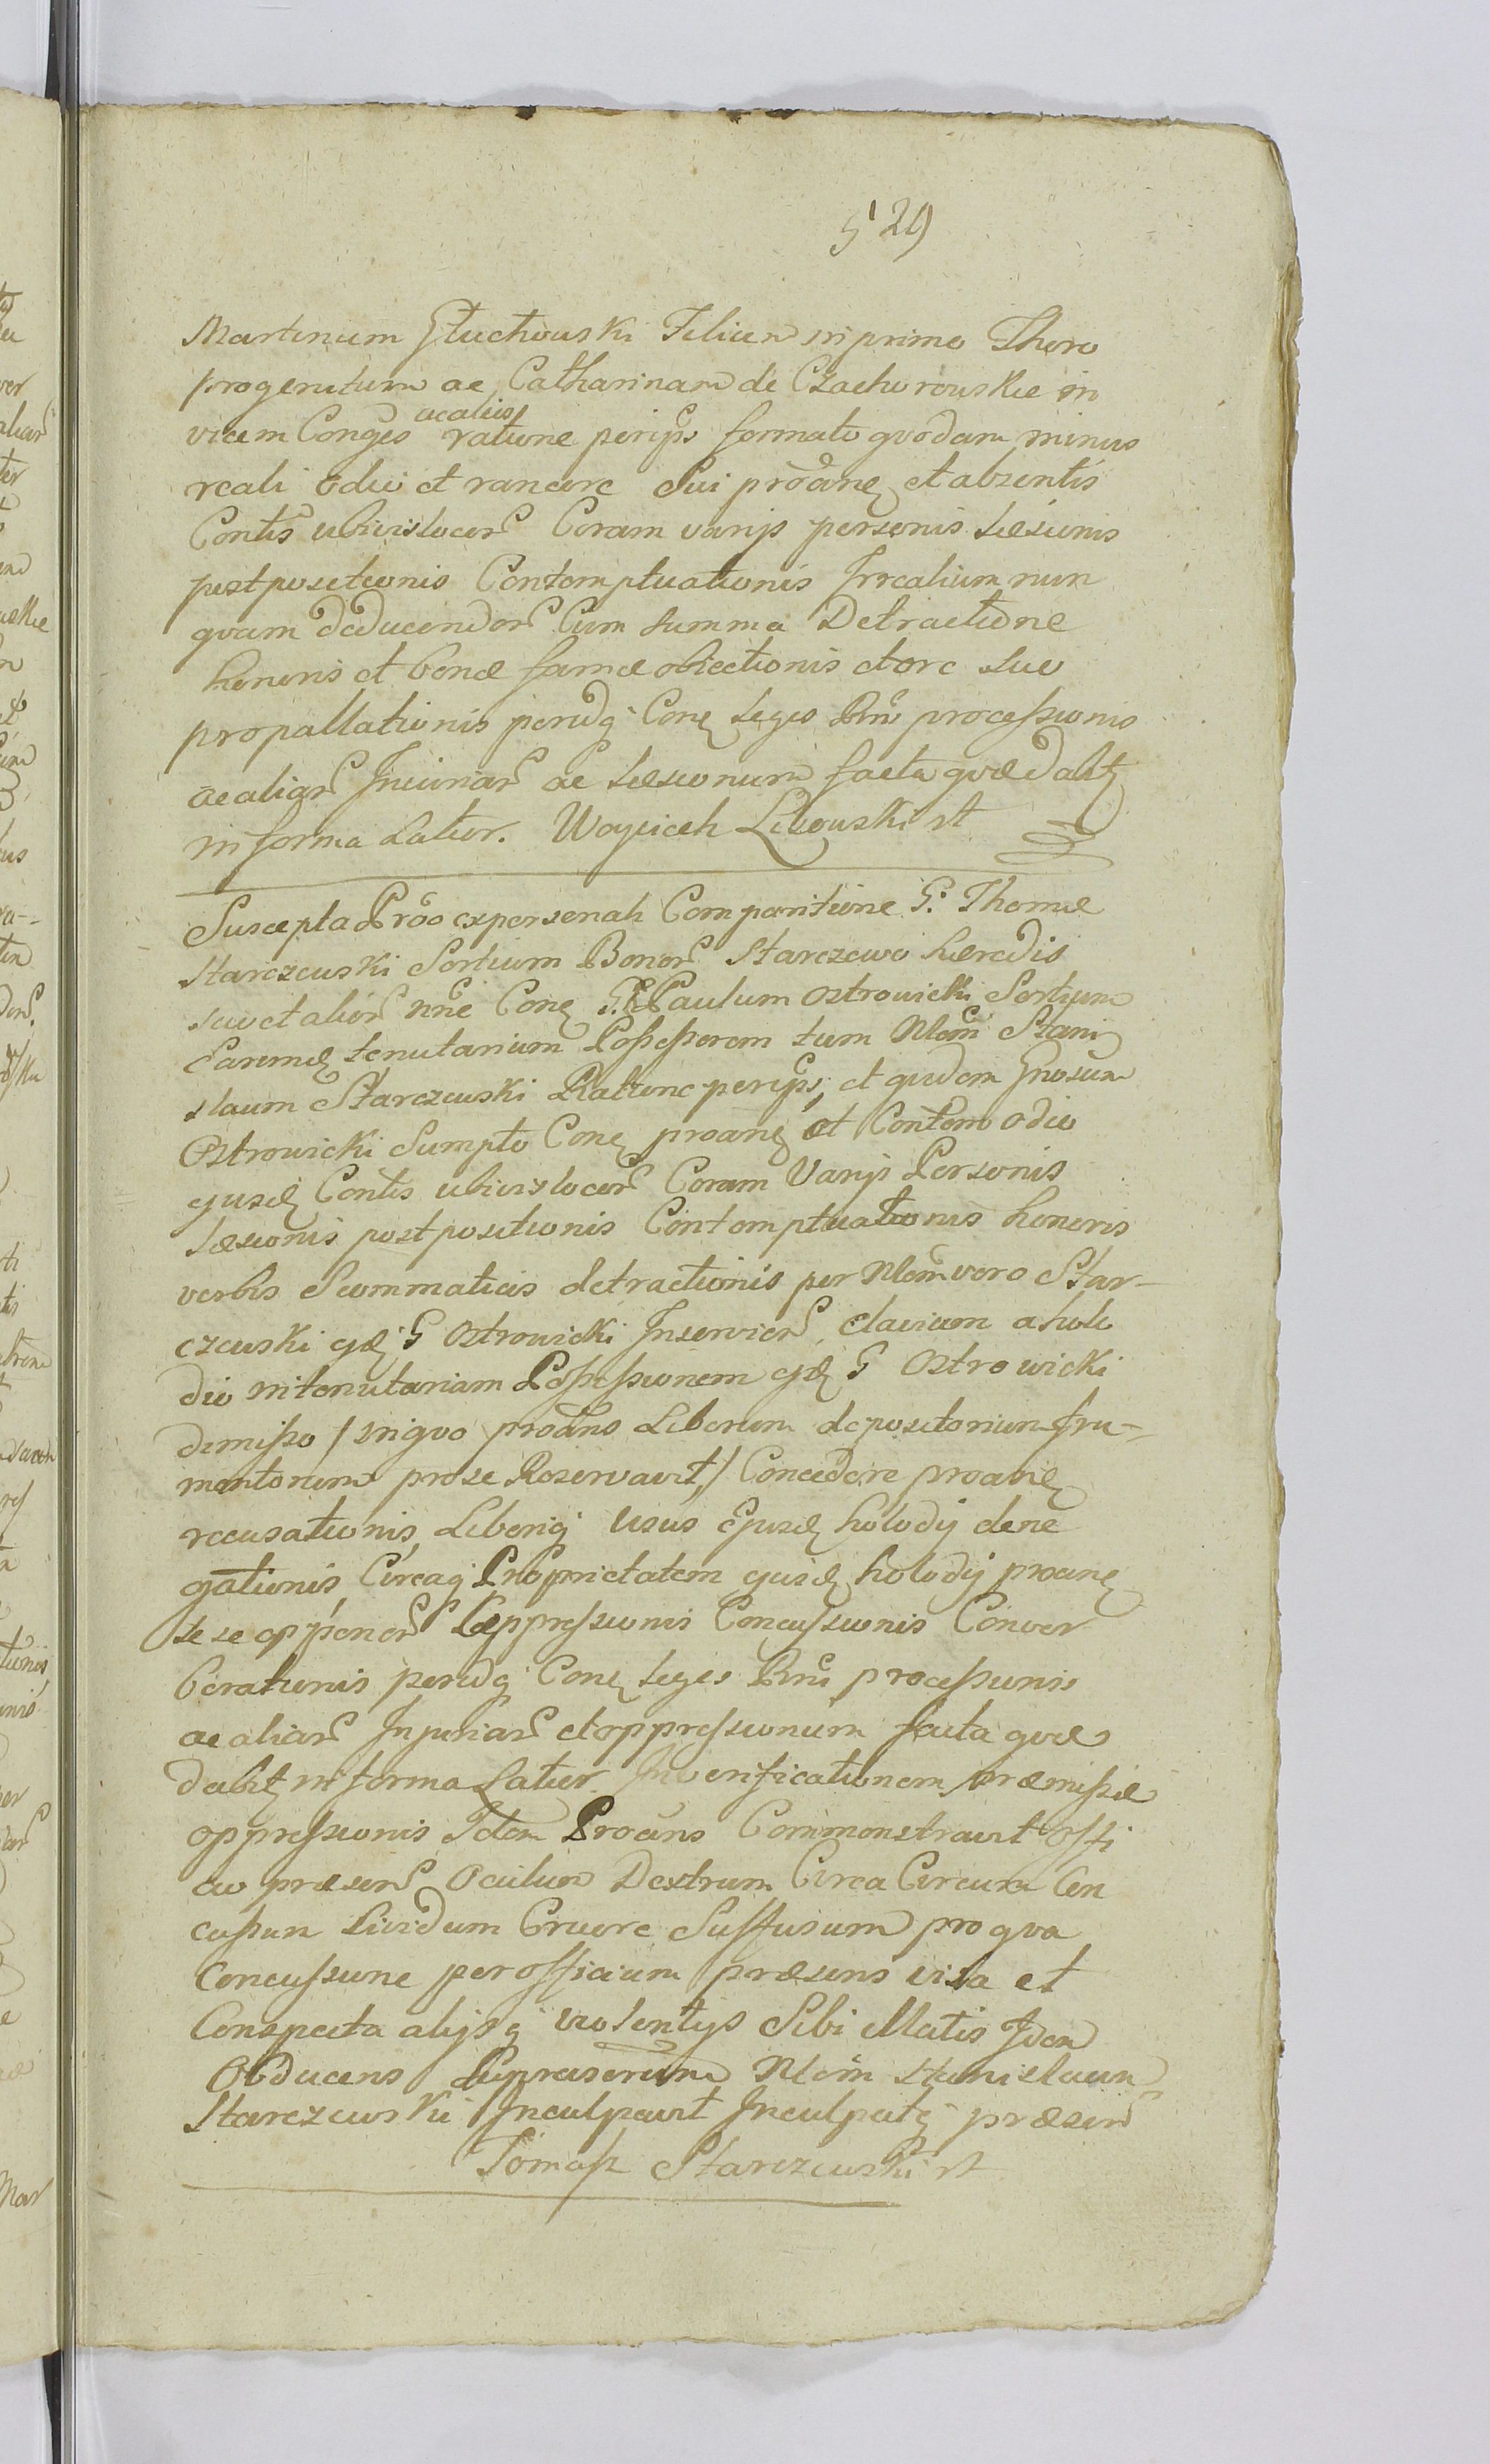 529
Martinum Głuchowski Filium in primo Thoro
progenitum ac Catharinam de Czachorowskie in
vicem Conges ac alios ratione perips formato qvodam minus
reali odio et rancore Sui proanę et absentis
Contis ubivis locor Coram varijs personis Læsionis
postpositionis Contemptuationis Irrealium nun
qvam deducendor Cum summa Detractione
honoris et bonæ famæ obiectionis et ore suo
propallationis peridq Conę leges Rni processionis
ac aliar Iniuriar ac Læsionum facta qvæ dabitę
in forma Latior. Woyciech Libowski st
Suscepta Pröo ex personali Comparitione G. Thomæ
Starczewski Sortium Bonor Starczewo hæredis
suo et alior nne Conę G. Paulum Ostrowicki Sortium
earundę tenutarium Possessorem tum Nlem Stani
slaum Starczewski Ratione perips, et qvidem Gnosum
Ostrowicki Sumpto Conę proanę et Contem odio
ejusdę Contis ubivis locor Coram Varijs Personis
Læsionis postpositionis Contemptuationis honoris
verbis Scommaticis detractionis per Nlem vero Star-
czewski ejdę G Ostrowicki Inservien, clavium a holo
dio in tenutariam Possessionem ejdę G Ostrowicki
dimisso / in qvo proans Liberum depositorium fru-
mentorum pro se Reservavit / Concedere proanę
recusationis Liberiq Usus Ejusdę holodij dene
gationis Circaq Proprietatem ejusdę holodij proanę
se se opponen Oppressionis Concussionis Conver
berationis peridq Conę leges Rni processionis
ac aliar Injuriar et oppressionum facta qvæ
dabitę in forma Latior In verificationem præmissæ
oppressionis Idem Proans Commonstravit offi
cio præsen Oculum Dextrum Circa Circum Con
cussum Lividum Cruore Suffusum pro qva
Concussione per officium præsens visa et
Conspecta alijsq violentijs Sibi illatis Idem
Obducens Supra Nlem Stanislaum
Starczewski Inculpavit Inculpatq præsen
Tomasz Starczewski st